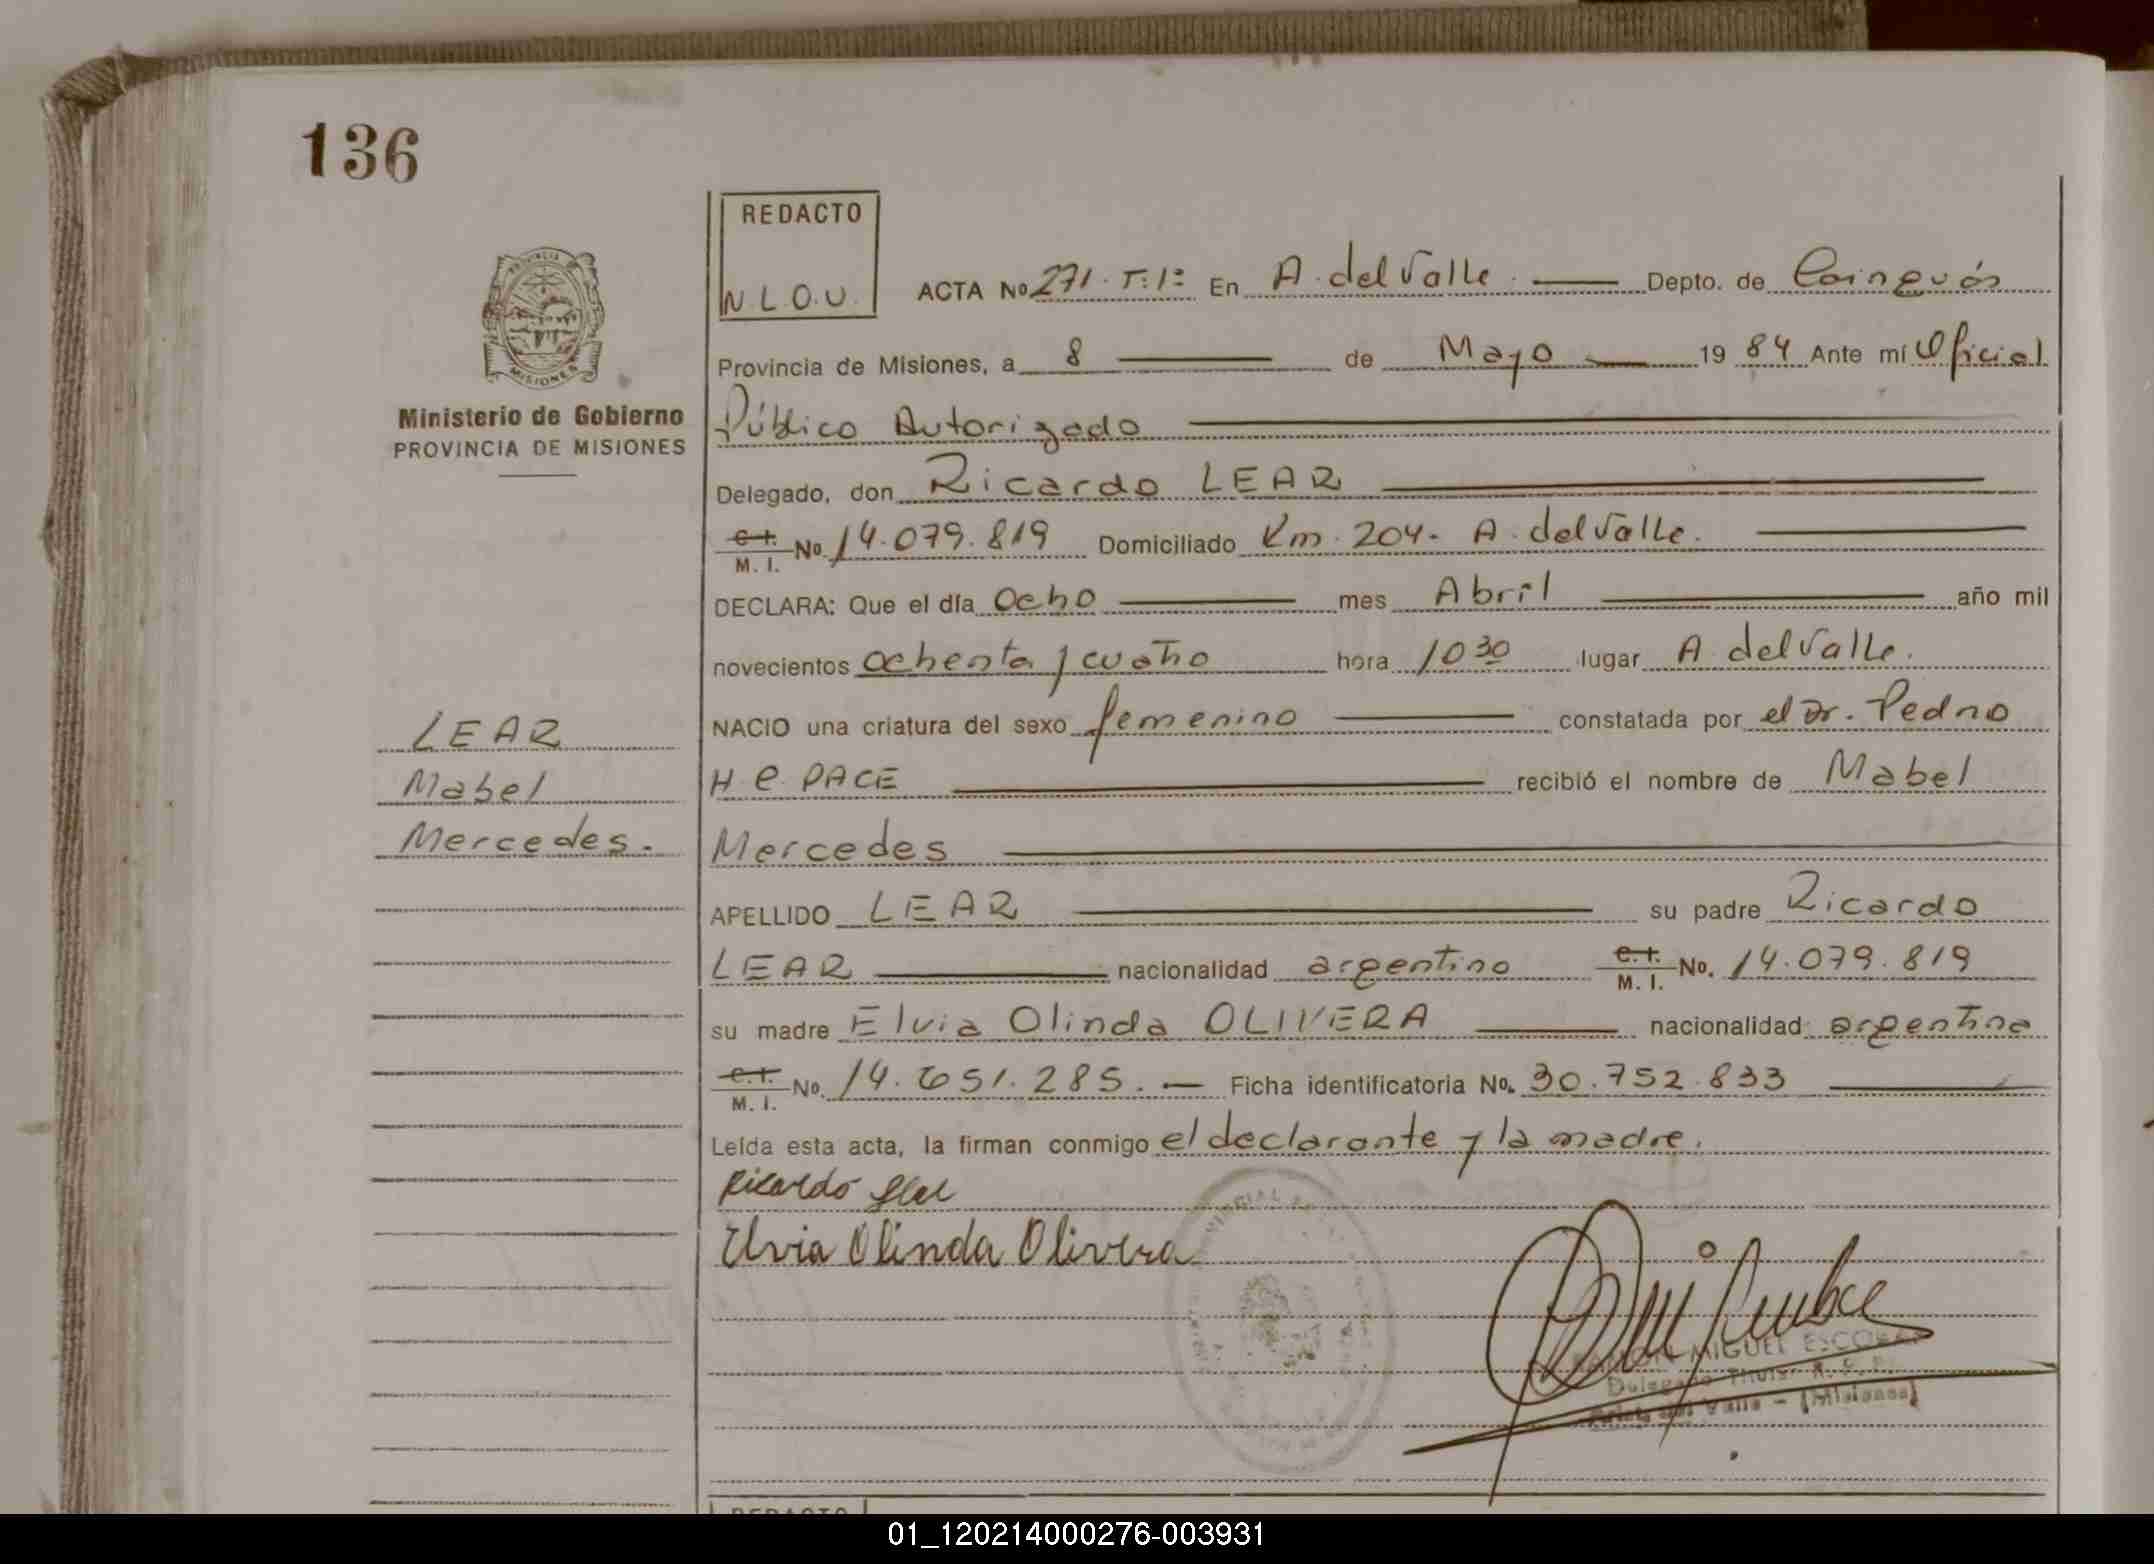 136
REDACTO
N.L.O.U.
ACTA No 271. T: 1º En A. del Valle. Depto. de Cainguás
Provincia de Misiones, a 8 de Mayo 1984 Ante mí Oficial
Ministerio de Gobierno
PROVINCIA DE MISIONES
Público Autorizado
Delegado, don Ricardo LEAR
C.I. M. I. No. 14.079.819 Domiciliado Km. 204- A. del Valle.
DECLARA: Que el día ocho mes Abril año mil
novecientos ochenta y cuatro hora 10 30 lugar A. del Valle.
NACIO una criatura del sexo femenino constatada por el Dr. Pedro
H. C. PACE recibió el nombre de Mabel
LEAR
Mabel
Mercedes.
Mercedes
APELLIDO LEAR su padre Ricardo
LEAR nacionalidad argentino C.I. M. I. No. 14.079.819
su madre Elvia Olinda OLIVERA nacionalidad argentina
C.I. M. I. No. 14.651.285. Ficha identificatoria No. 30.752.833
Leída esta acta, la firman conmigo el declarante y la madre.
Ricardo Lear
Elvia Olinda Olivera
RAMON MIGUEL ESCOBAR
Delegado Titular R. C. P.
del Valle - (Misiones)
REDACTO
01_120214000276-003931